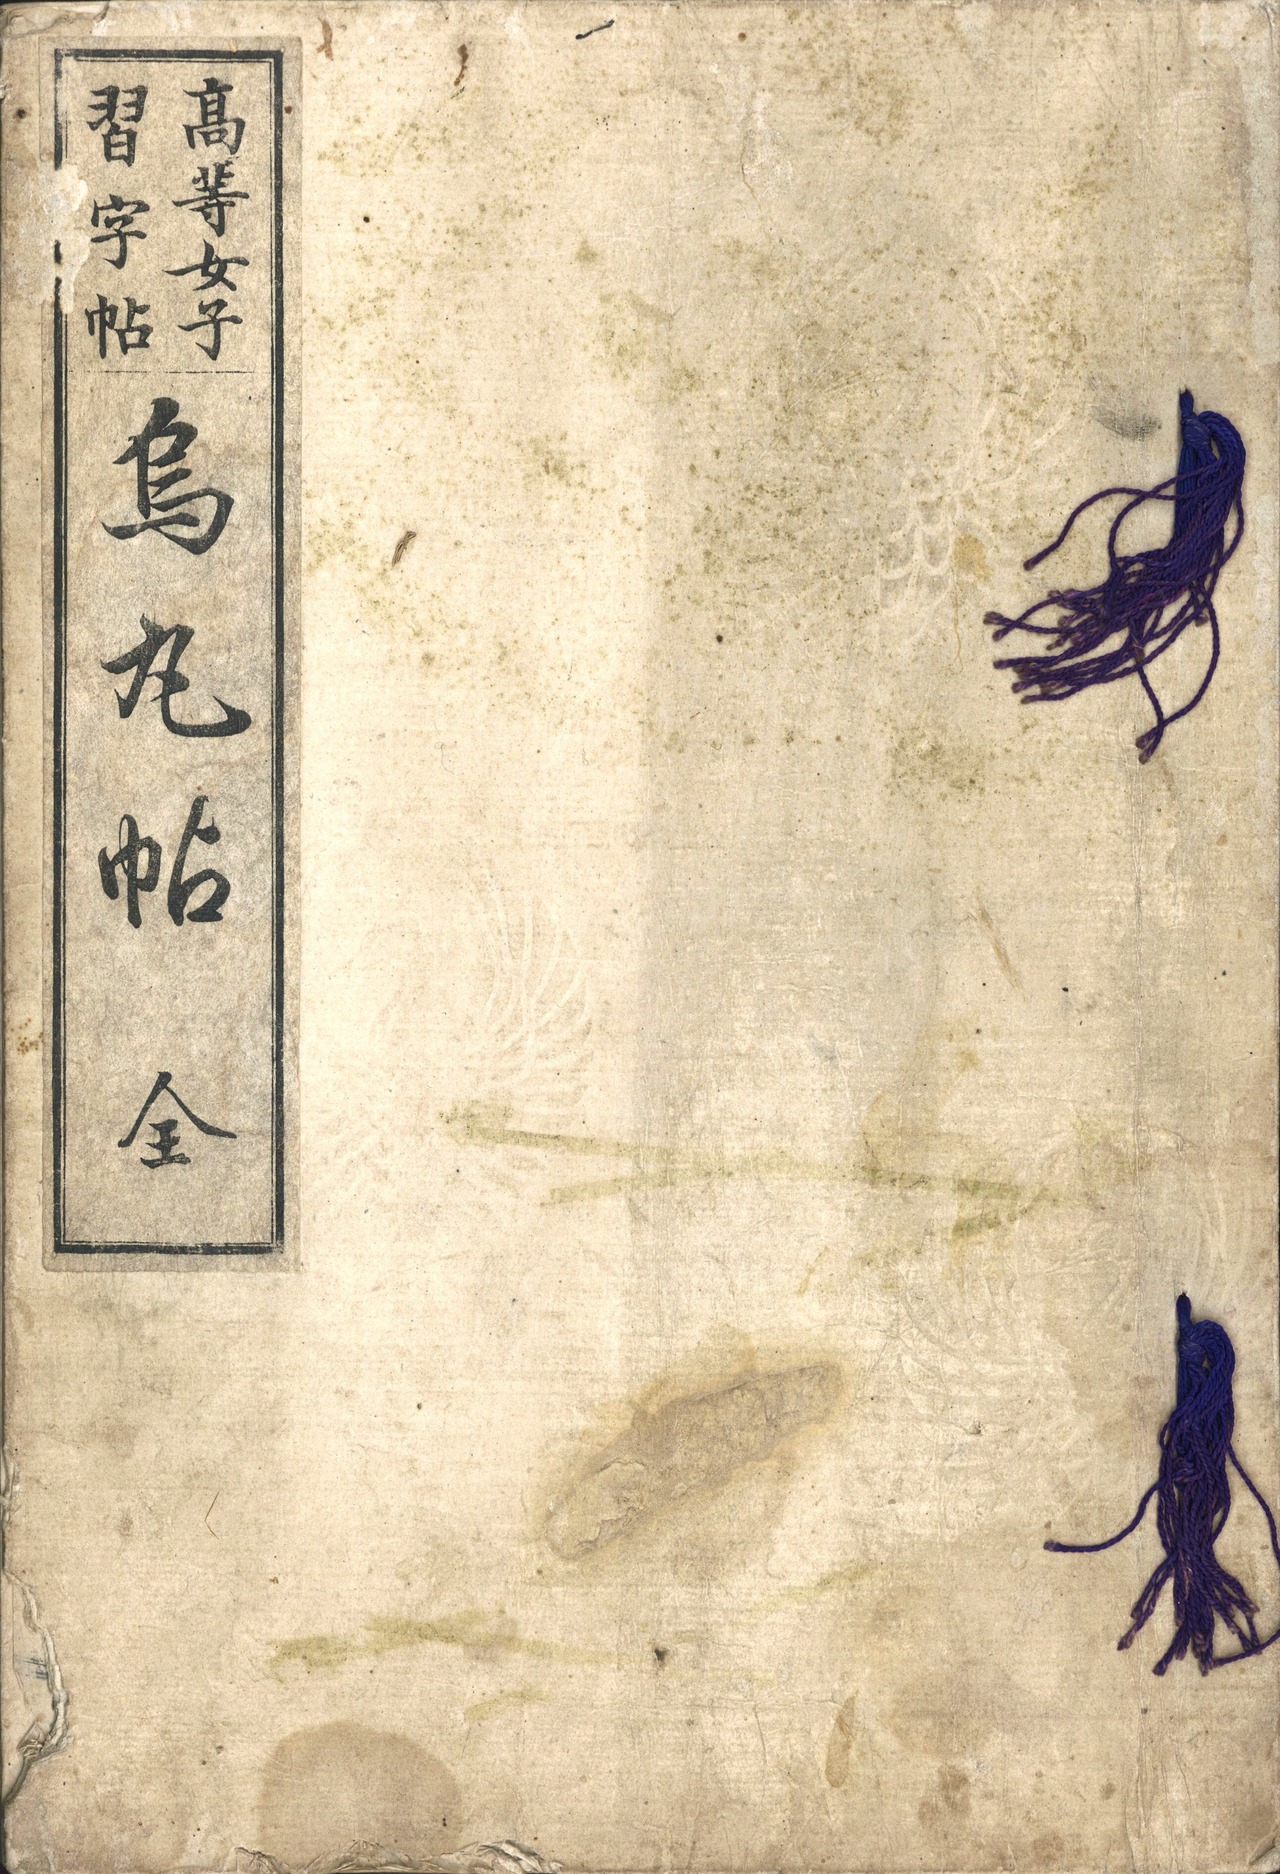 高等女子
習字帖
烏丸帖
全